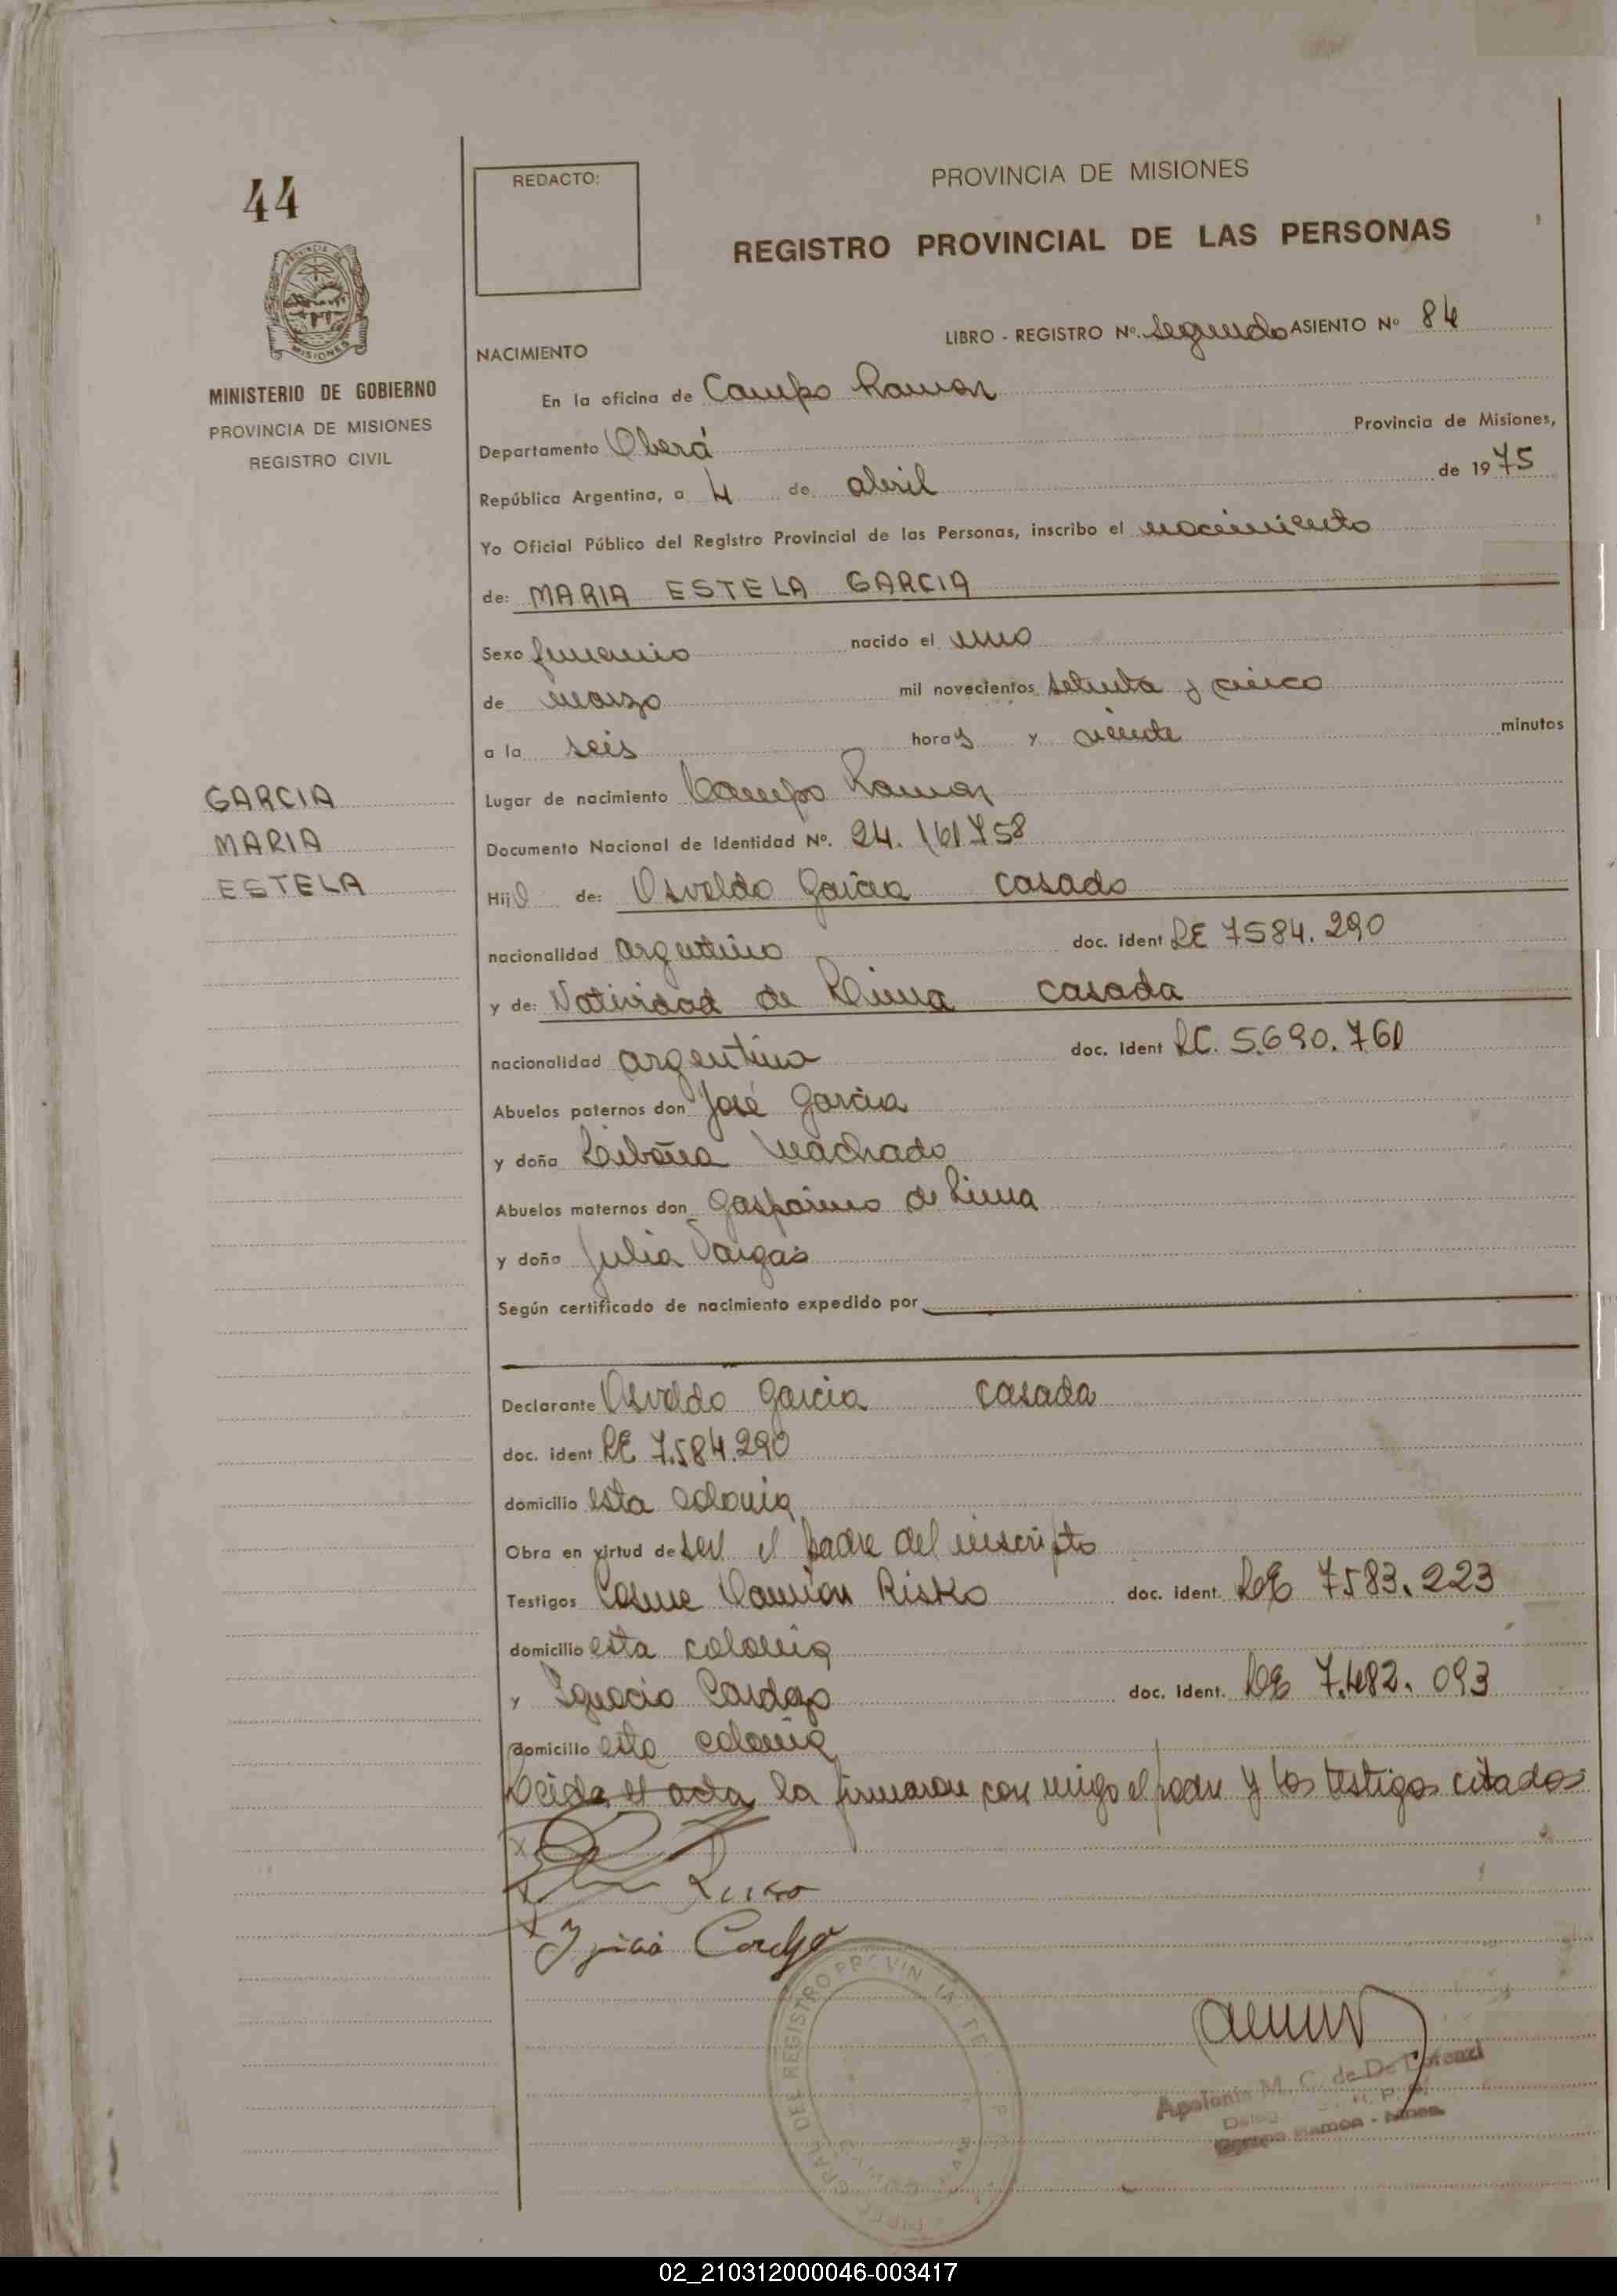 44
PROVINCIA DE
MISIONES
MINISTERIO DE GOBIERNO
PROVINCIA DE MISIONES
REGISTRO CIVIL
GARCIA
MARIA
ESTELA
REDACTO:
PROVINCIA DE MISIONES
REGISTRO PROVINCIAL DE LAS PERSONAS
LIBRO - REGISTRO Nº. Segundo ASIENTO Nº 84
NACIMIENTO
En la oficina de Campo Ramon
Departamento Oberá Provincia de Misiones,
República Argentina, a 4 de abril de 1975
Yo Oficial Público del Registro Provincial de las Personas, inscribo el nacimiento
de: MARIA ESTELA GARCIA
Sexo femenino nacido el uno
de marzo mil novecientos setenta y cinco
a la seis horas y veinte minutos
Lugar de nacimiento Campo Ramon
Documento Nacional de Identidad Nº. 24.161758
Hija de: Osvaldo Garcia casado
nacionalidad argentino doc. ident LE 7584.290
y de: Natividad de Lima casada
nacionalidad argentina doc. ident LC. 5.690.761
Abuelos paternos don José Garcia
y doña Machado
Abuelos maternos don de Lima
y doña Julia Vargas
Según certificado de nacimiento expedido por
Declarante Osvaldo Garcia casada
doc. ident LE 7.584.290
domicilio esta colonia
Obra en virtud de ser el padre del inscripto
Testigos Cosme Damian Risko doc. ident. LE 7583.223
domicilio esta colonia
y Ignacio Cardozo doc. ident. LE 7.482.093
domicilio esta colonia
Leida el acta la firmaron con migo el padre y los testigos citados
x
x Risko
x
DE REGISTRO PROVIN
Apolonia M. C. de De Lorenzi
Campo Ramón - Mnes.
02_210312000046-003417